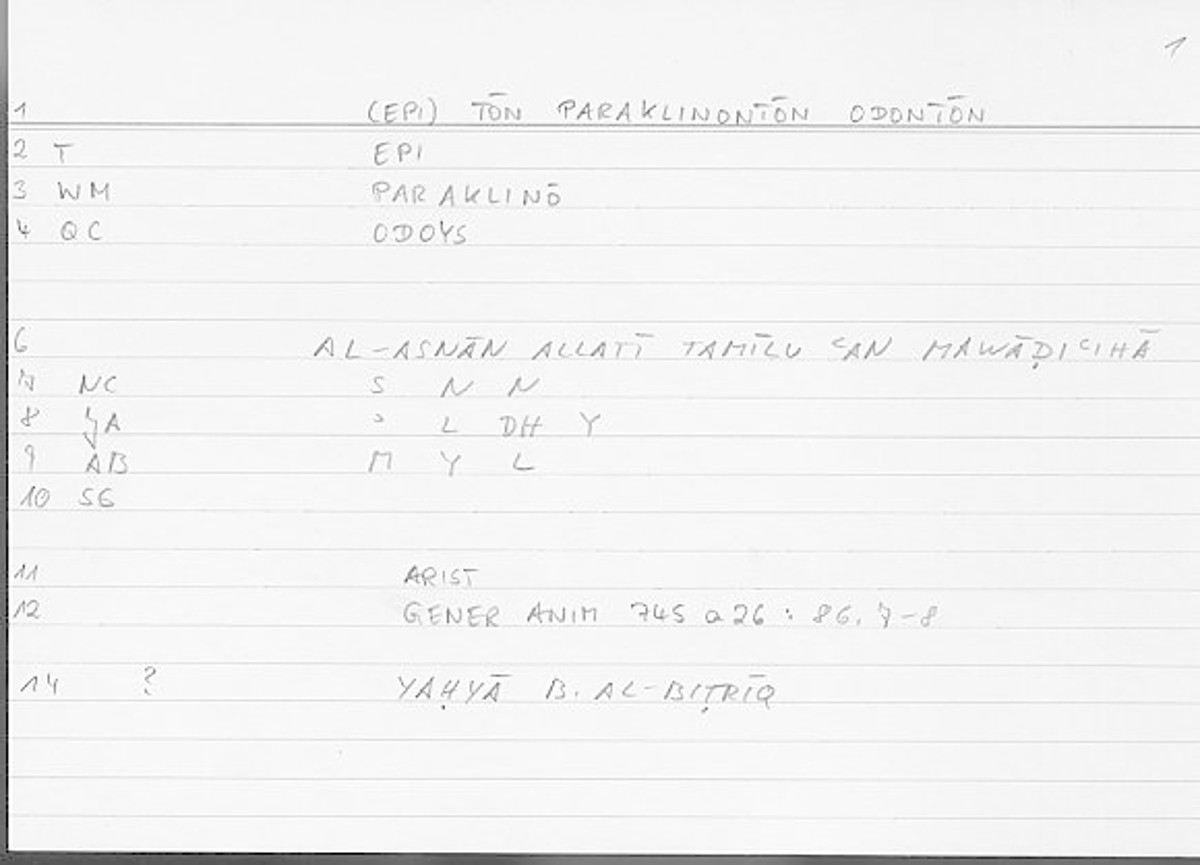 1
1 (EPI) TŌN PARAKLINONTŌN ODONTŌN
2 T EPI
3 WM PARAKLINŌ
4 QC ODOYS
6 AL-ASNĀN ALLATĪ TAMĪLU ʿAN MAWĀḌIʿIHĀ
7 NC S N N
8 JA ʾ L DH Y
9 AB M Y L
10 SG
11 ARIST
12 GENER ANIM 745 a 26 : 86, 7-8
14 ? YAḤYĀ B. AL-BIṬRĪQ